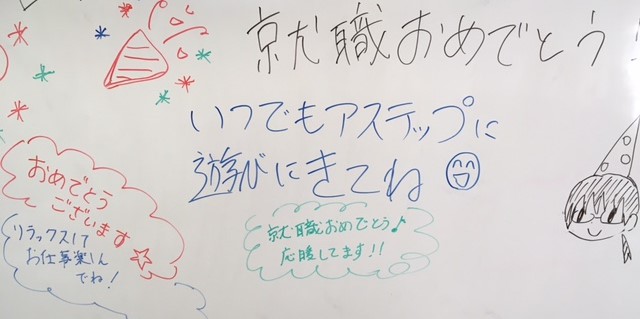 就職おめでとう
いつでもアステップに
遊びにきてね
おめでとう
ございます
リラックスして
お仕事楽しん
でね！
就職おめでとう♪
応援してます！！